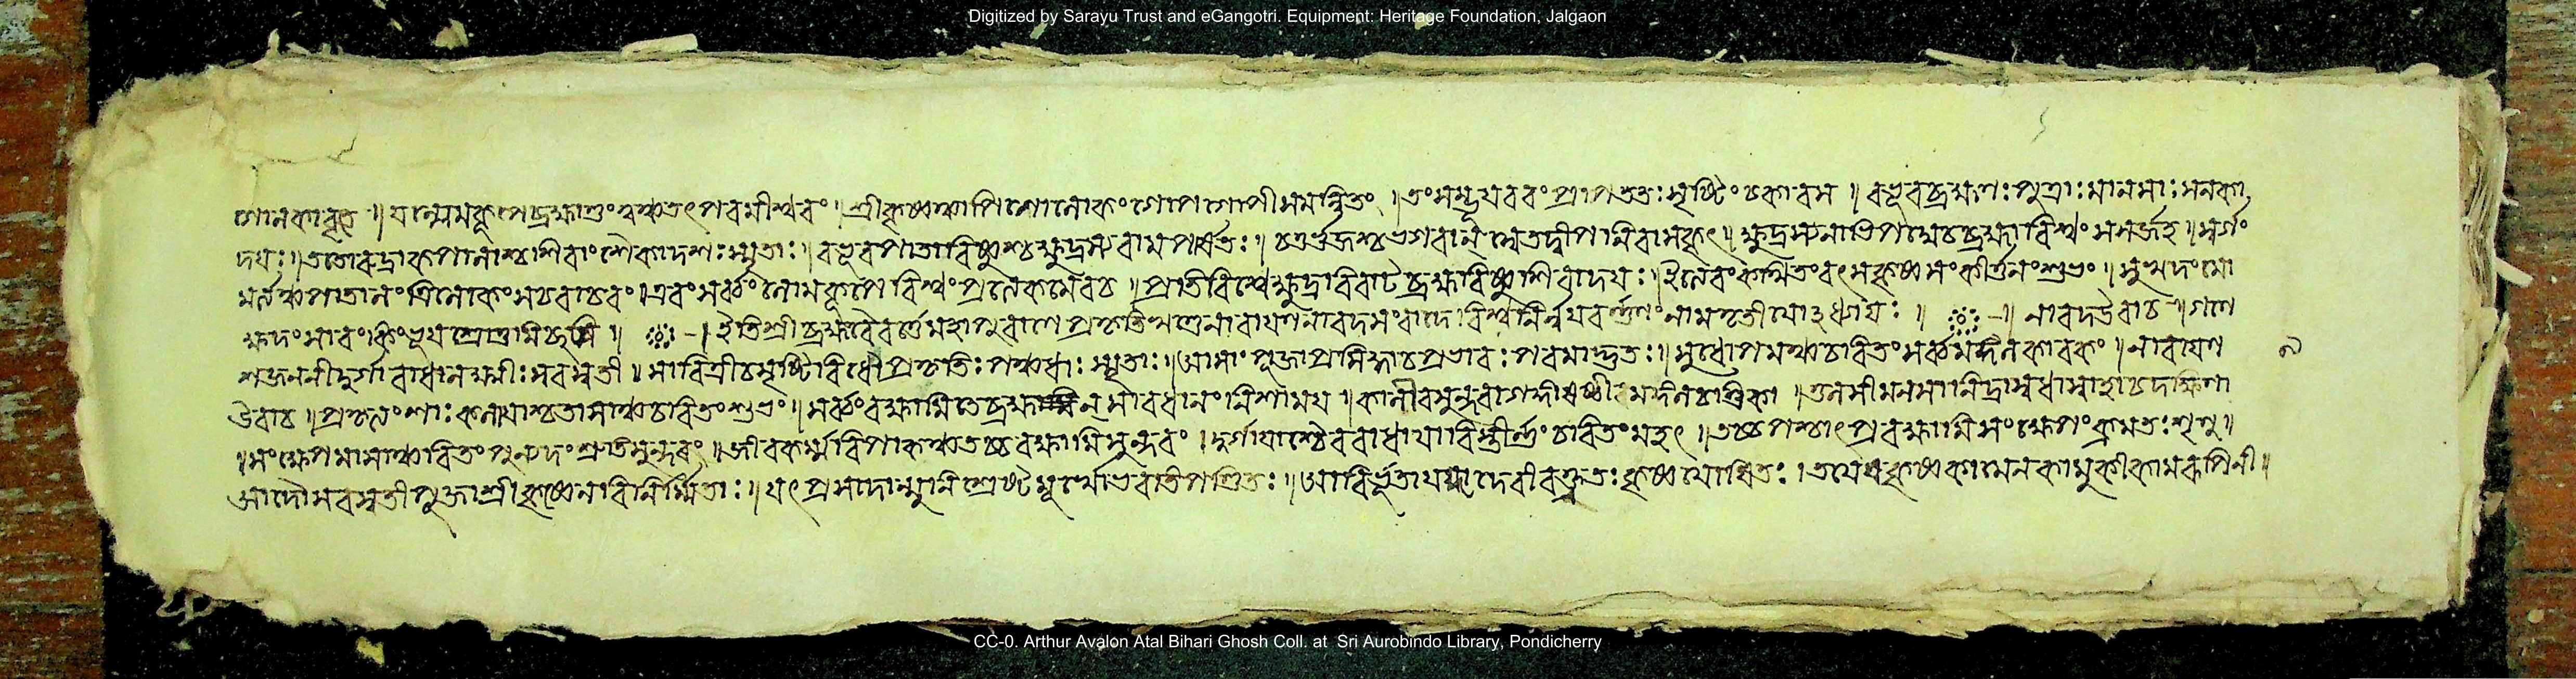 Digitized by Sarayu Trust and eGangotri. Equipment: Heritage Foundation, Jalgaon
গোলকাবৃতে ॥ যল্লোমকূপে ব্রহ্মাণ্ডং শ্রীকৃষ্ণস্যাপি গোলোকং গোপগোপীসমন্বিতং ॥ তং সম্ভূয় বরং প্রাপ ততঃ সৃষ্টিং চকার স ॥ বভূব ব্রহ্মণঃ পুত্রাঃ মানসাঃ সনকা
দয়ঃ ॥ ততো রুদ্রাকপালাচ্চ শিবাংশৈকাদশঃ স্মৃতাঃ ॥ বভূব পাতা বিষ্ণুশ্চ ক্ষুদ্রস্য বামপার্শ্বতঃ ॥ চতুর্ভুজশ্চ ভগবান্ শ্বেতদ্বীপনিবাসকৃৎ ॥ ক্ষুদ্রস্য নাভিপদ্মে চ ব্রহ্মা বিশ্বং সসর্জ্জ হ ॥ স্বর্গং
মর্ত্ত্যঞ্চ পাতালং ত্রিলোকং সচরাচরং ॥ এবং সর্ব্বং লোমকূপে বিশ্বং প্রত্যেকমেব চ ॥ প্রতিবিশ্বে ক্ষুদ্রবিরাট ব্রহ্মাবিষ্ণুশিবাদয়ঃ ॥ ইত্যেবং কথিতং বৎস কৃষ্ণসংকীর্ত্তনং শুভং ॥ সুখদং মো
ক্ষদং সারং কিং ভূয়ঃ শ্রোতুমিচ্ছসি ॥ ইতি শ্রীব্রহ্মবৈবর্ত্তে মহাপুরাণে প্রকৃতিখণ্ডে নারায়ণনারদসংবাদে বিশ্বনির্ন্নয়বর্ন্ননং নাম তৃতীয়োঽধ্যায়ঃ ॥ নারদ উবাচ ॥ গণে
শজননী দুর্গা রাধা লক্ষ্মীঃ সরস্বতী ॥ সাবিত্রী চ সৃষ্টিবিধৌ প্রকৃতিঃ পঞ্চধাঃ স্মৃতাঃ ॥ আসাং পূজা প্রসিদ্ধা চ প্রভাবঃ পরমাদ্ভুতঃ ॥ সুধোপমঞ্চ চরিতং সর্ব্বমঙ্গলকারকং ॥ নারায়ণ
৯
উবাচ ॥ প্রকৃত্যংশাঃ কলা যাশ্চ তাসাঞ্চ চরিতং শুভং ॥ সর্ব্বং বক্ষ্যামি তে ব্রহ্মন্ সাবধানং নিশাময় ॥ কালী বসুন্ধরা গঙ্গা ষষ্ঠী মঙ্গলচণ্ডিকা ॥ তুলসী মনসা নিদ্রা স্বধা স্বাহা চ দক্ষিণা
॥ সংক্ষেপমাসাঞ্চরিতং পুণ্যদং শ্রুতিসুন্দরং ॥ জীবকর্ম্মবিপাকঞ্চ তচ্চ বক্ষ্যামি সুন্দরং ॥ দুর্গায়াশ্চৈব রাধায়া বিস্তীর্ন্নং চরিতং মহৎ ॥ তচ্চ পশ্চাৎ প্রবক্ষ্যামি সংক্ষেপং ক্রমতঃ শৃণু ॥
আদৌ সরস্বতী পূজা শ্রীকৃষ্ণেন বিনির্ম্মিতাঃ ॥ যৎপ্রসাদান্মুনিশ্রেষ্ঠ মূর্খো ভবতি পণ্ডিতঃ ॥ আবির্ভূতা যয়া দেবী বক্ত্রতঃ কৃষ্ণযোষিতঃ ॥ কৃষ্ণ কামেন কামুকী কামরূপিনী ॥
CC-0. Arthur Avalon Atal Bihari Ghosh Coll. at Sri Aurobindo Library, Pondicherry